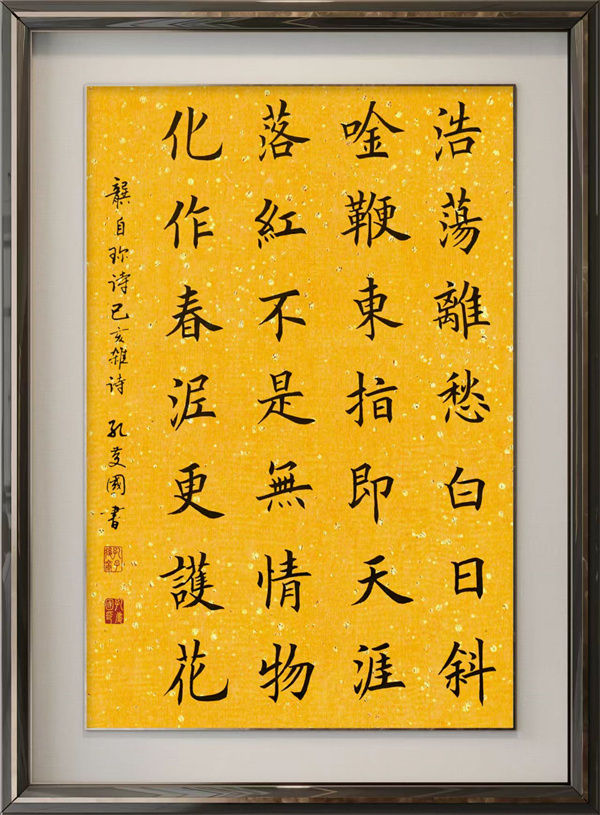 浩蕩離愁白日斜
唫鞭東指即天涯
落紅不是無情物
化作春泥更護花
龔自珍诗己亥雜诗 孔慶國書